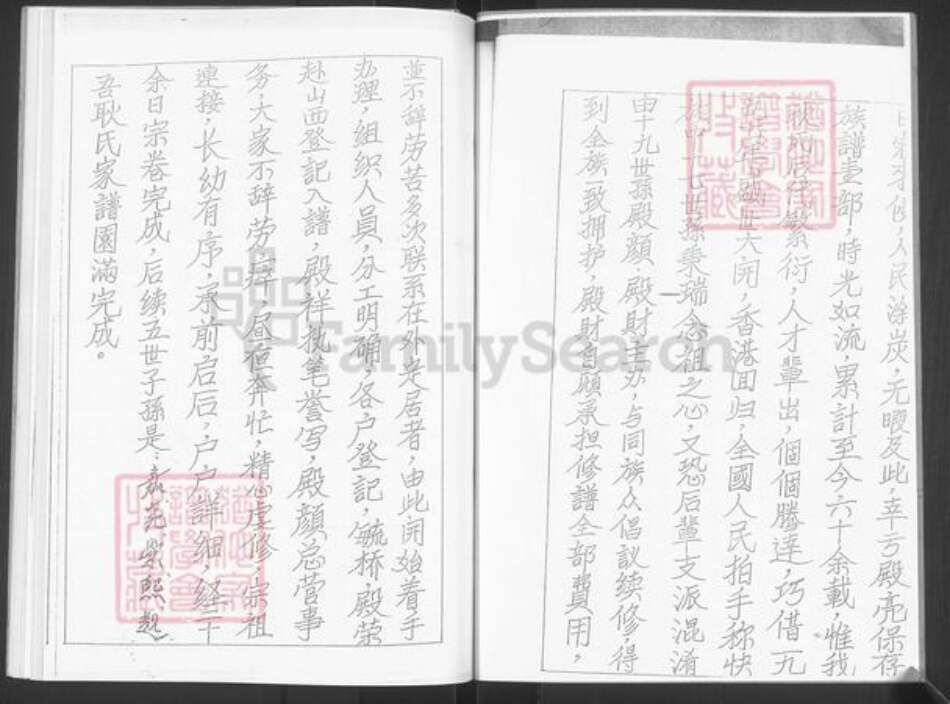 人民涂炭，无暇及此，幸亏殿亮保存
族譜壹部，時光如流，累計至今六十余載，惟我
耿氏后代繁衍，人才輩出，個個騰達，巧借一九
大開，香港回归，全國人民拍手称快
十七世孫秉瑞念祖之心，又恐后輩支派混淆
由十九世孫殿顔、殿財主办，与同族众倡議续修，得
到全族一致拥护，殿財自願承担修譜全部費用，
並不辞劳苦多次联系在外定居者，由此开始着手
办理，組织人員，分工明确，各户登記，毓桥、殿荣
赴山西登記入譜，殿祥执笔誉写，殿顔总营事
务，大家不辞劳 ，昼夜奔忙，精心虔修，宗祖
連接，长幼有序，承前启后，户户詳细，经二十
余日宗卷完成，后续五世子孫是
熙
吾耿氏家譜圆滿完成。
FamilySearch